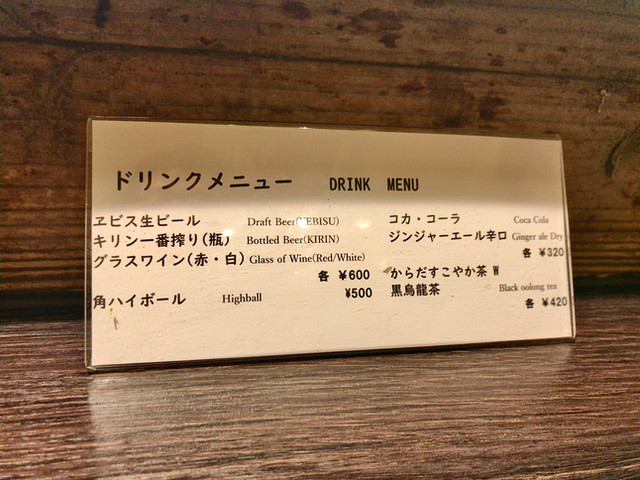 ドリンクメニュー DRINK MENU
ヱビス生ビール Draft Beer(YEBISU)
キリン一番搾り(瓶) Bottled Beer(KIRIN)
グラスワイン(赤・白) Glass of Wine(Red/White)
各 ¥600
角ハイボール Highball ¥500
コカ・コーラ Coca Cola
ジンジャーエール辛口 Ginger ale Dry
各 ¥320
からだすこやか茶 W
黒烏龍茶 Black oolong tea
各 ¥420